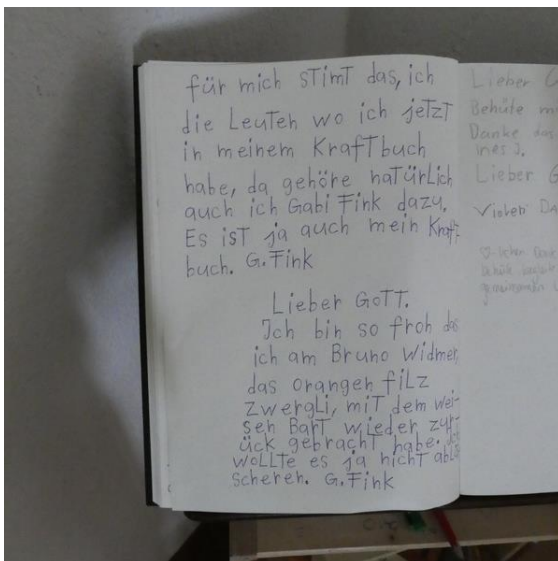 für mich stimt das, ich
die Leuten wo ich jetzt
in meinem Kraftbuch
habe, da gehöre natürlich
auch ich Gabi Fink dazu.
Es ist ja auch mein Kraft-
buch. G. Fink
Lieber Gott.
Ich bin so froh das
ich am Bruno Widmer,
das orangen filz
zwergli, mit dem wei-
sen Bart wieder zur-
ück gebracht habe.
wollte es ja nicht
scheren. G. Fink
Lieber
Behüte
Danke das
Ines J.
Lieber G